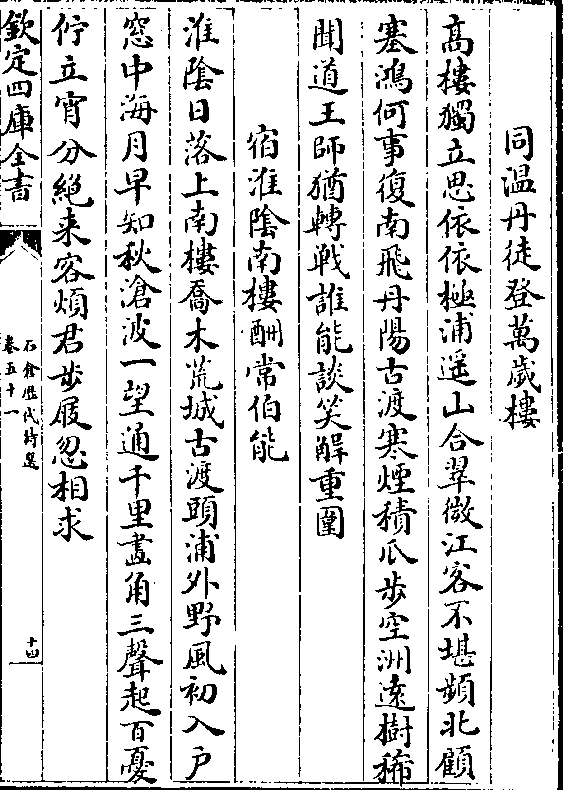 同溫丹徒登萬歲樓
高樓獨立思依依極浦遥山合翠微江客不堪頻北顧
塞鴻何事復南飛丹陽古渡寒煙積瓜步空洲遠樹稀
聞道王師猶轉戰誰能談笑解重圍
宿淮陰南樓酬常伯能
淮陰日落上南樓喬木荒城古渡頭浦外野風初入户
窓中海月早知秋滄波一望通千里畫角三聲起百憂
佇立宵分絶来客煩君步屐忽相求
欽定四庫全書
石倉歷代詩選
卷五十一
十四